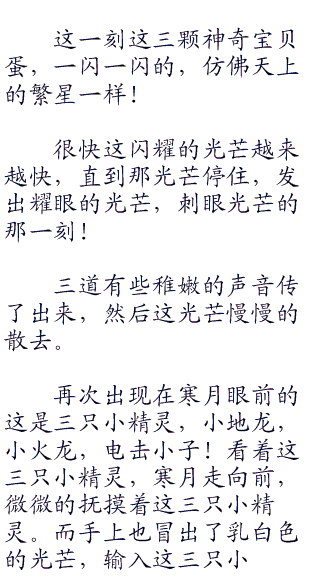 这一刻这三颗神奇宝贝
蛋，一闪一闪的，仿佛天上
的繁星一样！
很快这闪耀的光芒越来
越快，直到那光芒停住，发
出耀眼的光芒，刺眼光芒的
那一刻！
三道有些稚嫩的声音传
了出来，然后这光芒慢慢的
散去。
再次出现在寒月眼前的
这是三只小精灵，小地龙，
小火龙，电击小子！看着这
三只小精灵，寒月走向前，
微微的抚摸着这三只小精
灵。而手上也冒出了乳白色
的光芒，输入这三只小